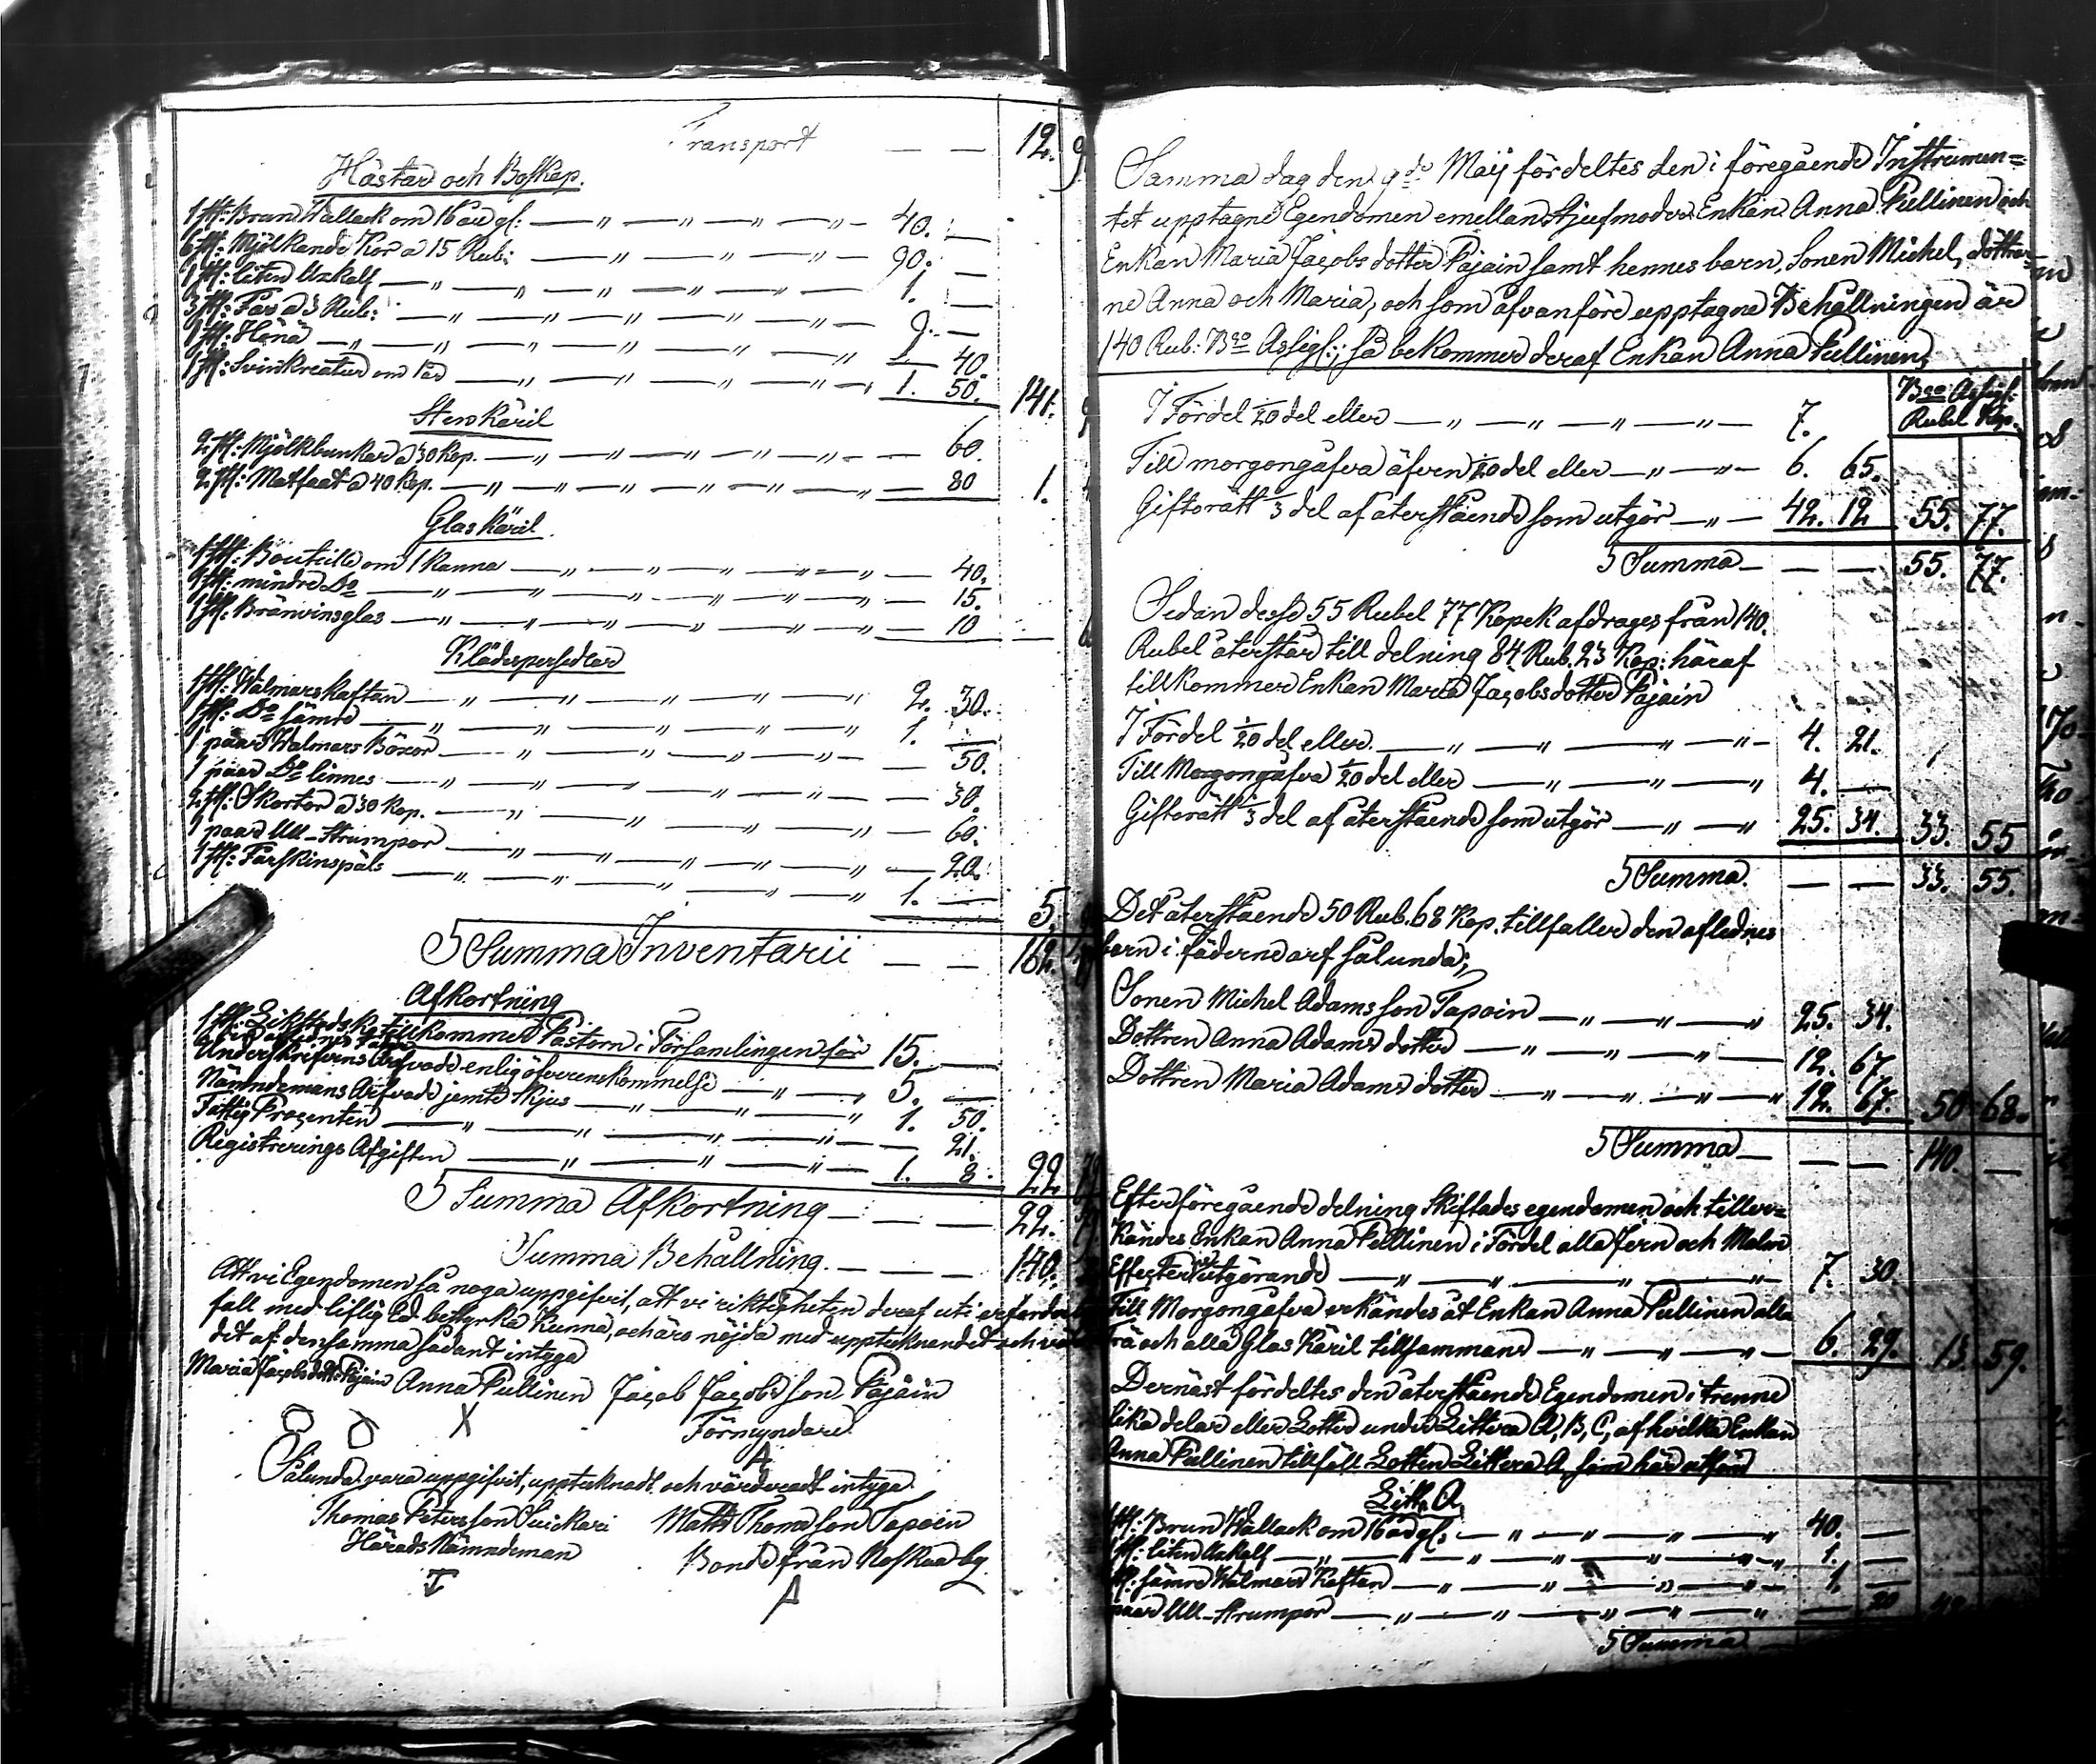 Transport — — 12. 9
Hästar och Boskap.
1 st: Brun Wallack om 16 år gl: — 40. —
6 st: Mjölkande Kor a 15 Rub: — 90. —
1 st: liten Uxkalf — 1. —
3 st: Får a 3 Rub: — 9. —
1 st: Höna — 40.
1 st: Svinkreatur om 1 år — 1. 50. 141. 9
Stenkäril
2 st: Mjölkbunkar a 30 Kop. — 60.
2 st: Matfaat a 40 Kop. — 80 1.
Glas Käril.
1 st: Bouteille om 1 Kanna — 40.
st: mindre Do — 15.
1 st: Bränvinsglas — 10
Klädespersedlar
1 st: Walmars kaftan — 2. 30.
1 st: Do sämre — 1. —
1 paar Walmars Böxor — 50.
1 paar Do linnes — 30.
2 st: Skortor a 30 Kop. — 60.
1 paar Ull-strumpor — 20.
1 st: Fårskinspäls — 1. — 5.
Summa Inventarii — — 162.
Afkortning
tillkommer Pastorn i Församlingen för 15. —
Underskrifvens Arfvode enligt öfverenskommelse — 5. —
Nämndemans Arfvode jemte skjus — 1. 50.
Fattig Procenten — 21.
Registrerings Afgiften — 1. 8. 22
Summa Afkortning — — 22.
Summa Behållning. — — 140.
Att vi Egendomen så noga uppgifvit, att vi riktigheten deraf uti
fall med liflig Ed bestyrka kunna, och äro nöjda med upptecknandet och
det af: densamma sådant intyga
Maria Jacobsdotter Pajain Anna Pullinen Jacob Jacobsson Pajain
Förmyndare
Sålunda vara uppgifvit, upptecknadt och värderadt intyga
Thomas Petersson Suikari Matts Thomasson Tapoin
Härads Nämndeman Bonde från Koskua by.
Samma dag den 9de Maij fördeltes den i föregående Instrumen=
tet upptagne Egendomen emellan stjufmodern Enkan Anna Pullinen och
Enkan Maria Jacobs dotter Pajain samt hennes barn, Sonen Michel, döttrar=
ne Anna och Maria, och som ofvanföre upptagne Behållningen är
140 Rub: Bco Assigs:; så bekommer deraf Enkan Anna Pullinen;
Bco Assigs:
Rubel Kop.
I Fördel 1/20 del eller — 7.
Till morgongåfva äfven 1/20 del eller — 6. 65.
Giftorätt 1/3 del af återstående som utgör — 42. 12 55. 77.
Summa — — 55. 77.
Sedan desse 55 Rubel 77 Kopek afdrages från 140.
Rubel återstår till delning 84 Rub. 23 Kop: häraf
tillkommer Enkan Maria Jacobsdotter Pajain
I Fördel 1/20 del eller — 4. 21.
Till Morgongåfva 1/20 del eller — 4. —
Giftorätt 1/3 del af återstående som utgör — 25. 34. 33. 55
Summa. — — 33. 55.
Det återstående 50 Rub. 68 Kop. tillfaller den aflednes
barn i fäderne arf sålunda;
Sonen Michel Adamsson Tapoin — 25. 34.
Dottren Anna Adams dotter — 12. 67.
Dottren Maria Adams dotter — 12. 67. 50 68.
Summa — — 140. —
Efter föregående delning skiftades egendomen och tiller=
kändes Enkan Anna Pullinen i Fördel alla Jern och Malm
Effecter utgörande — 7. 30.
Till Morgongåfva erkändes åt Enkan Anna Pullinen alla
Trä och alla Glas Käril tillsammans — 6. 29. 13. 59.
Dernäst fördeltes den återstående Egendomen i trenne
lika delar eller Lotter under Littera A, B, C, af hvilka Enkan
Anna Pullinen tillföll Lotten Littera A, som här
Litt. A.
1 st: Brun Wallack om 16 år gl: — 40. —
1 st: liten Uxkalf — 1. —
st: sämre Walmars Kaftan — 1. —
paar Ull-strumpor — 20
Summa